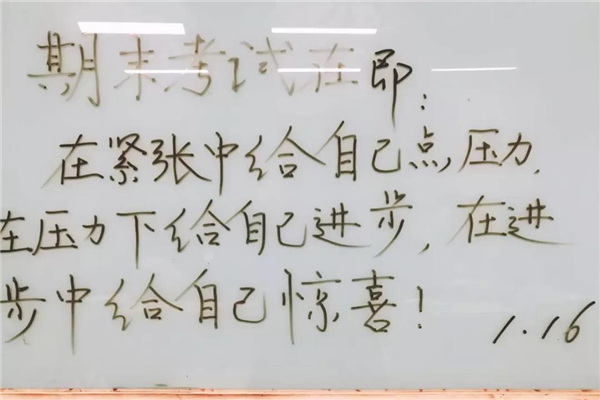 期末考试在即：
在紧张中给自己点压力，
在压力下给自己进步，在进
步中给自己惊喜！
1.16